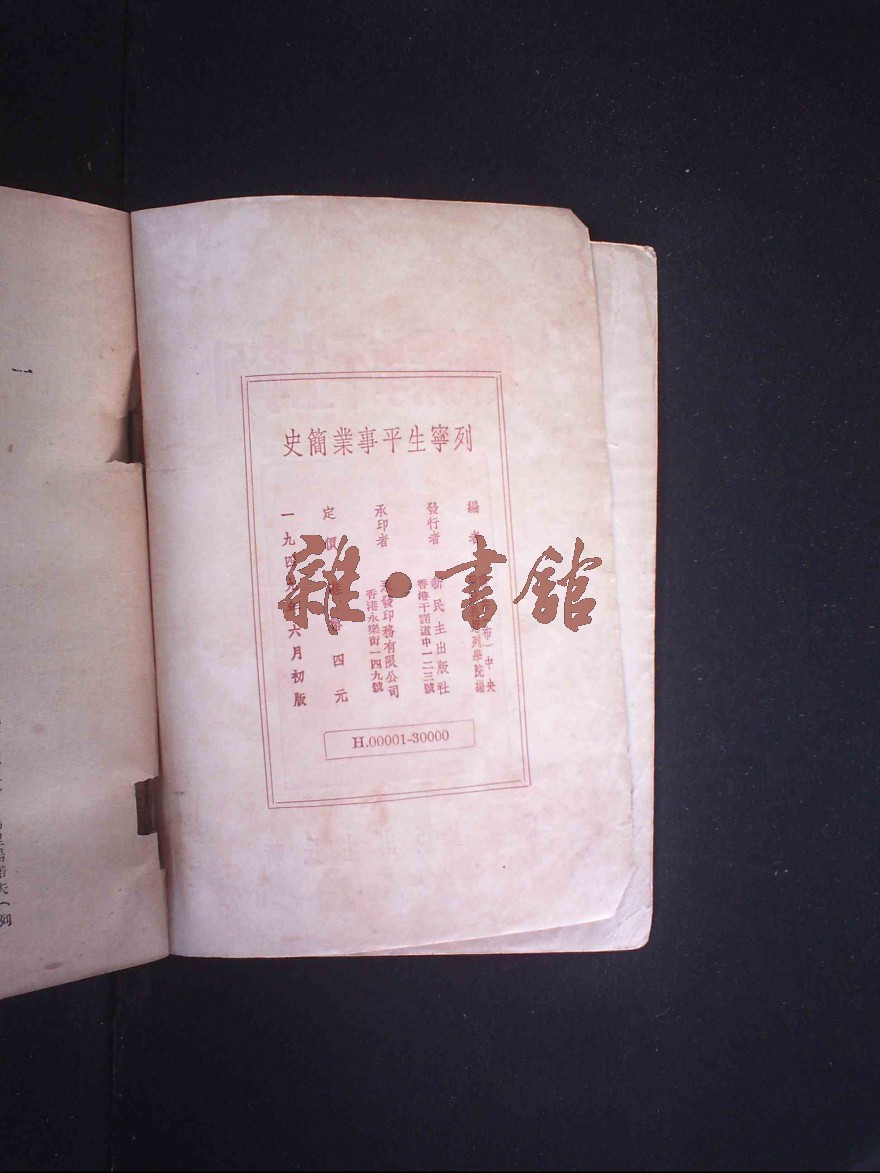 列寧生平事業簡史
編者
中央
列學院編
發行者
新民主出版社
香港干諾道中一二三號
承印者
發印務有限公司
香港永樂街一四九號
定價
四元
一九四 年六月初版
H.00001-30000
雜·書館